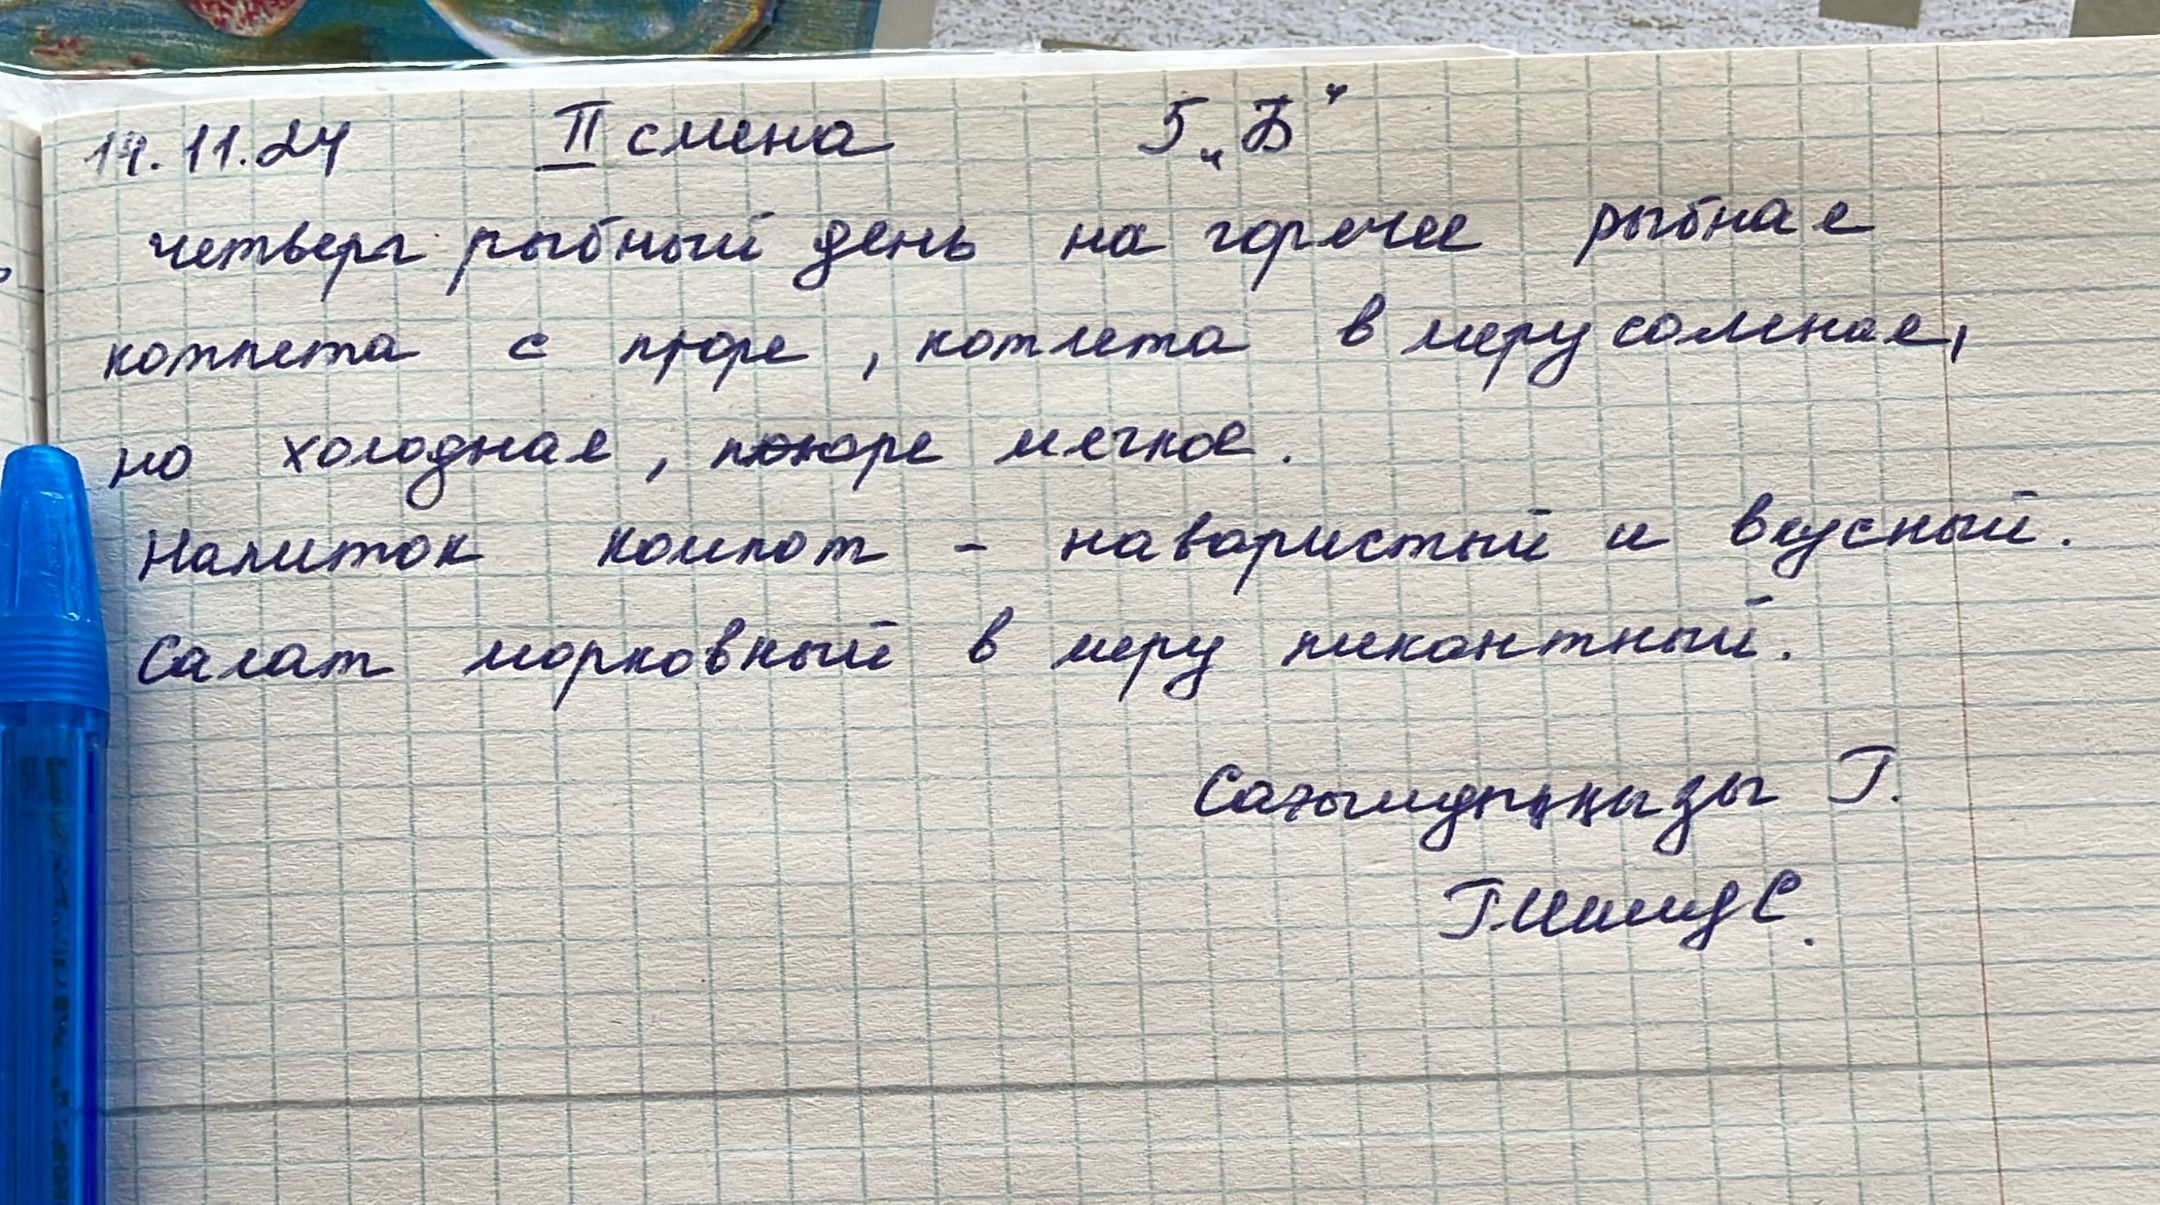 14.11.24 II смена 5 „Б“
четверг рыбный день на горячее рыбная
котлета с пюре, котлета в меру соленая,
но холодная, пюре мягкое.
Напиток компот - наваристый и вкусный.
Салат морковный в меру пикантный.
Г.